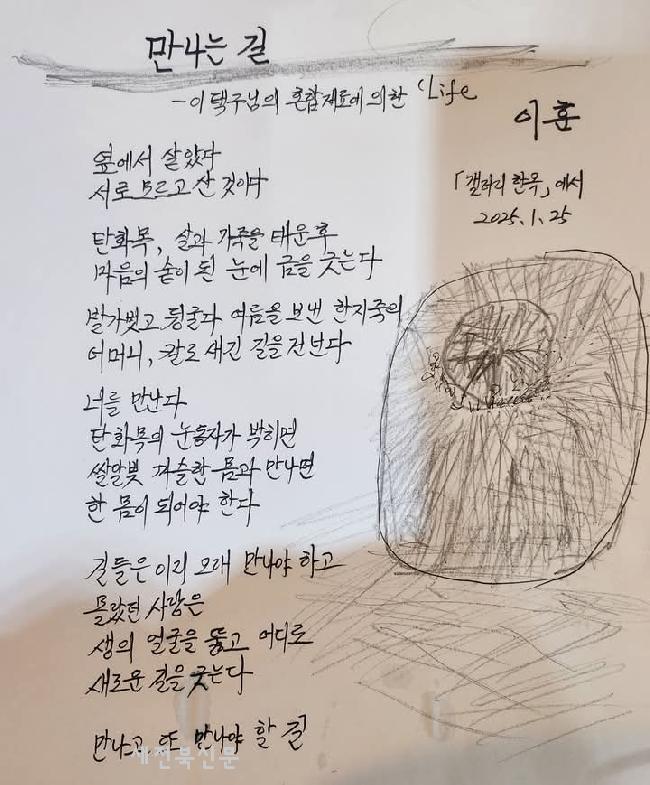 만나는 길
- 이택구님의 혼합재료에 의한 'Life
이훈
「갤러리 한옥」에서
2025. 1. 25
옆에서 살았다
서로 모르고 산 것이다
탄화목, 살과 가죽을 태운 후
마음의 숯이 된 눈에 금을 긋는다
발가벗고 뒹굴다 여름을 보낸 한지죽의
어머니, 칼로 새긴 길을 건넌다
너를 만난다
탄화목의 눈동자가 박히면
쌀알빛 까슬한 몸과 만나면
한 몸이 되어야 한다
길들은 이리 오래 만나야 하고
몰랐던 사람은
생의 얼굴을 뚫고 어디로
새로운 길을 긋는다
만나고 또 만나야 할 길
새전북신문